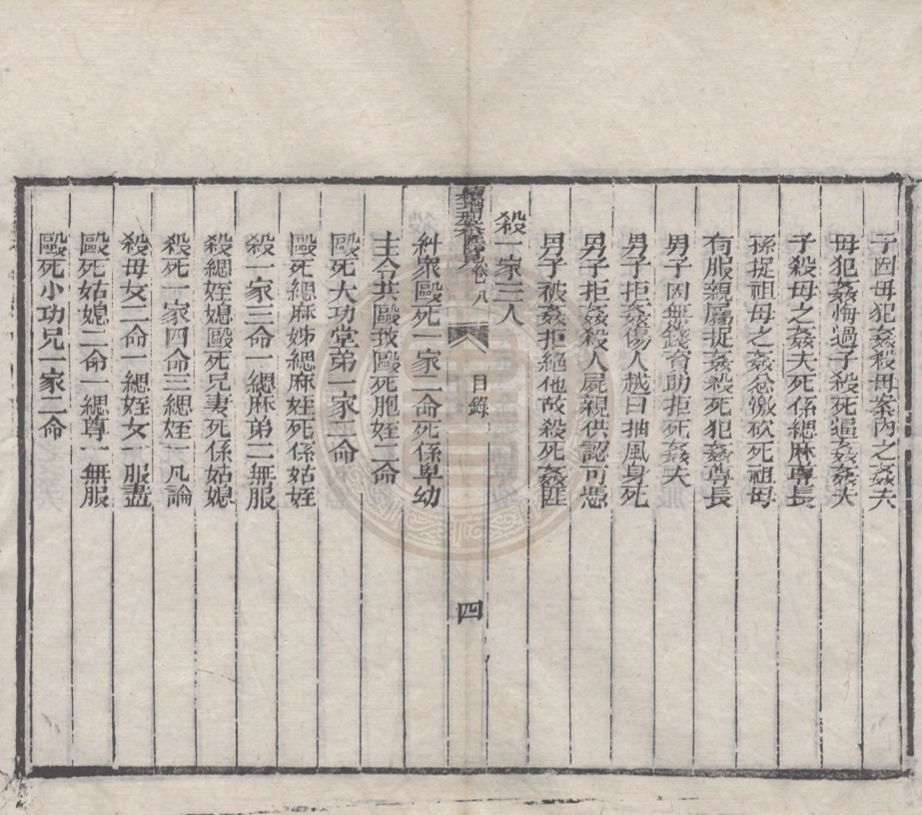 子因母犯姦殺母案內之姦夫
母犯姦悔過子殺死逼姦姦夫
子殺母之姦夫死係緦麻尊長
孫捉祖母之姦忿激砍死祖母
有服親屬捉姦殺死犯姦尊長
男子因無錢資助拒死姦夫
男子拒姦傷人越日抽風身死
男子拒姦殺人屍親供認可憑
男子被姦拒絕他故殺死姦匪
卷八
目錄
四
殺一家三人
糾眾毆死一家二命死係卑幼
主令共毆致毆死胞姪二命
毆死大功堂弟一家二命
毆死緦麻姊緦麻姪死係姑姪
殺一家三命一緦麻弟二無服
殺緦姪媳毆死兄妻死係姑媳
殺死一家四命三緦姪一凡論
殺母女二命一緦姪女一服盡
毆死姑媳二命一緦尊一無服
毆死小功兄一家二命